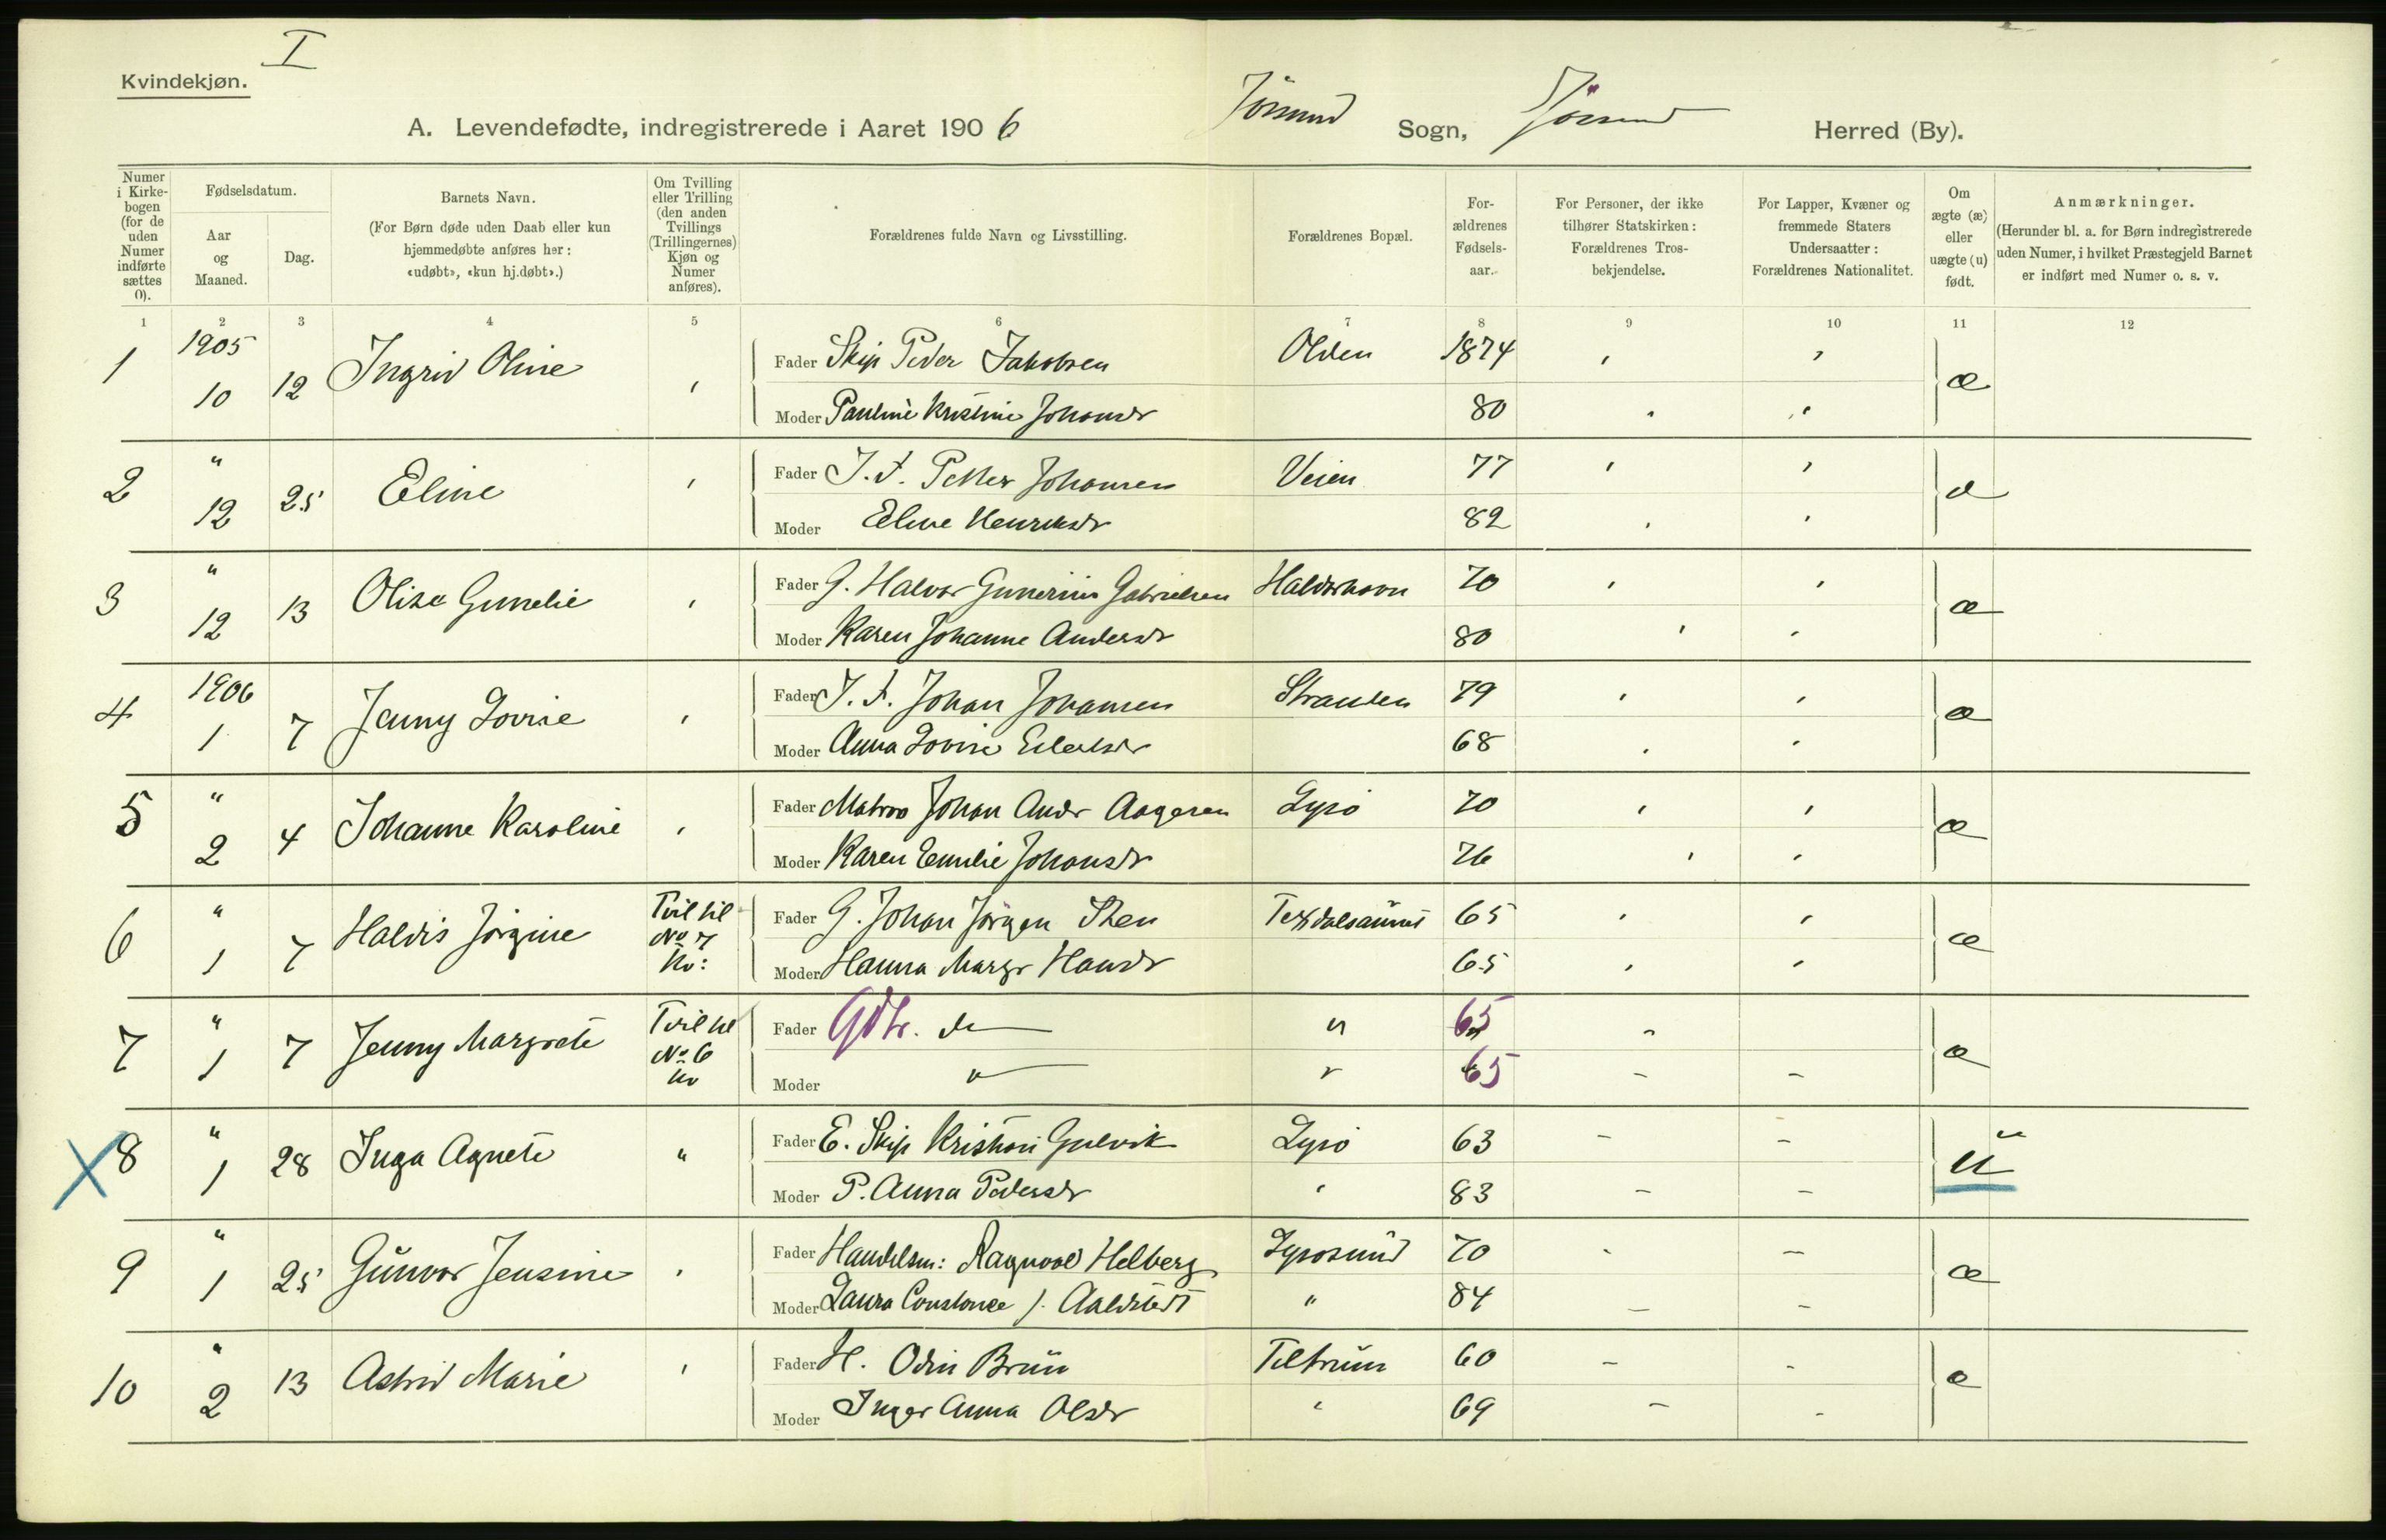 I
Kvindekjøn.
A. Levendefødte, indregistrerede i Aaret 1906 Jøssund Sogn, Jøssund Herred (By).
Numer i Kirkebogen (for de uden Numer indførte sættes 0).
Fødselsdatum.
Aar og Maaned.
Dag.
Barnets Navn.
(For Børn døde uden Daab eller kun
hjemmedøbte anføres her:
«udøbt», «kun hj.døbt».)
Om Tvilling eller Trilling (den anden Tvillings (Trillingernes) Kjøn og Numer anføres).
Forældrenes fulde Navn og Livsstilling.
Forældrenes Bopæl.
Forældrenes Fødselsaar.
For Personer, der ikke
tilhører Statskirken:
Forældrenes Trosbekjendelse.
For Lapper, Kvæner og
fremmede Staters
Undersaatter:
Forældrenes Nationalitet.
Om ægte (æ) eller uægte (u) født.
Anmærkninger.
(Herunder bl. a. for Børn indregistrerede
uden Numer, i hvilket Præstegjeld Barnet
er indført med Numer o. s. v.
1 2 3 4 5 6 7 8 9 10 11 12
1 1905 10 12 Ingrid Oline ' Fader Skip Peder Jakobsen Olden 1874 ' ' æ
Moder Pauline Kristine Johansdr 80 ' '
2 " 12 25 Eline ' Fader J. F. Petter Johansen Veien 77 ' ' æ
Moder Eline Henriksdr 82 ' '
3 " 12 13 Olise Gunelie ' Fader G. Halvor Gunerius Gabrielsen Haldorhavn 70 ' ' æ
Moder Karen Johanne Andersdr 80 ' '
4 1906 1 7 Jenny Lovise ' Fader J. F. Johan Johansen Stranden 79 ' ' æ
Moder Anna Lovise Eilertsdr 68 ' '
5 " 2 4 Johanne Karoline ' Fader Matros Johan Andr Aagesen Lysø 70 ' ' æ
Moder Karen Emelie Johansdr 76 ' '
6 " 1 7 Haldis Jørgine Tvil til No 7 Kv: Fader G. Johan Jørgen Sten 65 ' ' æ
Moder Hanna Margr Hansdr 65 ' '
7 " 1 7 Jenny Margrete Tvil til No 6 Kv Fader Gdbr. do " 65 - æ
Moder " " 65 - -
X 8 " 1 28 Inga Agnete " Fader E. Skip Kristian Gulvik Lysø 63 - - u
Moder P. Anna Pedersdr " 83 - -
9 " 1 25 Gunvor Jensine ' Fader Handelsm: Ragnval Helberg Lysøsund 70 - - æ
Moder Laura Constance J. Aalstedt " 84 - -
10 " 2 13 Astrid Marie ' Fader H. Odin Brun Teltrum 60 - - æ
Moder Inger Anna Olsdr " 69 - -